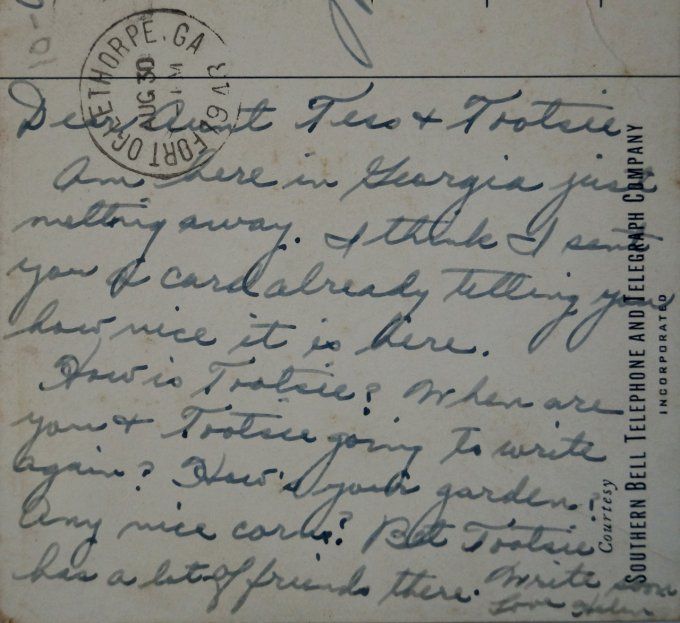 FORT OGLETHORPE, GA
AUG 30
1943
Dear Aunt Tess & Tootsie
Am here in Georgia just
melting away. I think I sent
you a card already telling you
how nice it is here.
How is Tootsie? When are
you & Tootsie going to write
again? How's your garden?
Any nice corn? Bet Tootsie
has a lot of friends there. Write soon
Love Helen
Courtesy
SOUTHERN BELL TELEPHONE AND TELEGRAPH COMPANY
INCORPORATED